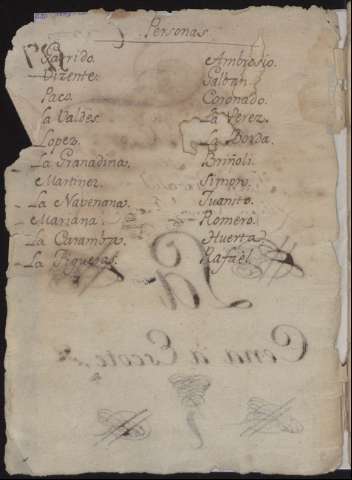 Personas.
Garrido. Ambrosio.
Vizente. Galban.
Paco. Coronado.
La Valdes. La Perez.
Lopez. La Borda.
La Granadina. Briñoli.
Martinez. Simon.
La Navenana. Juanito.
Mariana. Romero.
La Caramba. Huerta.
La Figueras. Rafael.
La
Cena à Escote